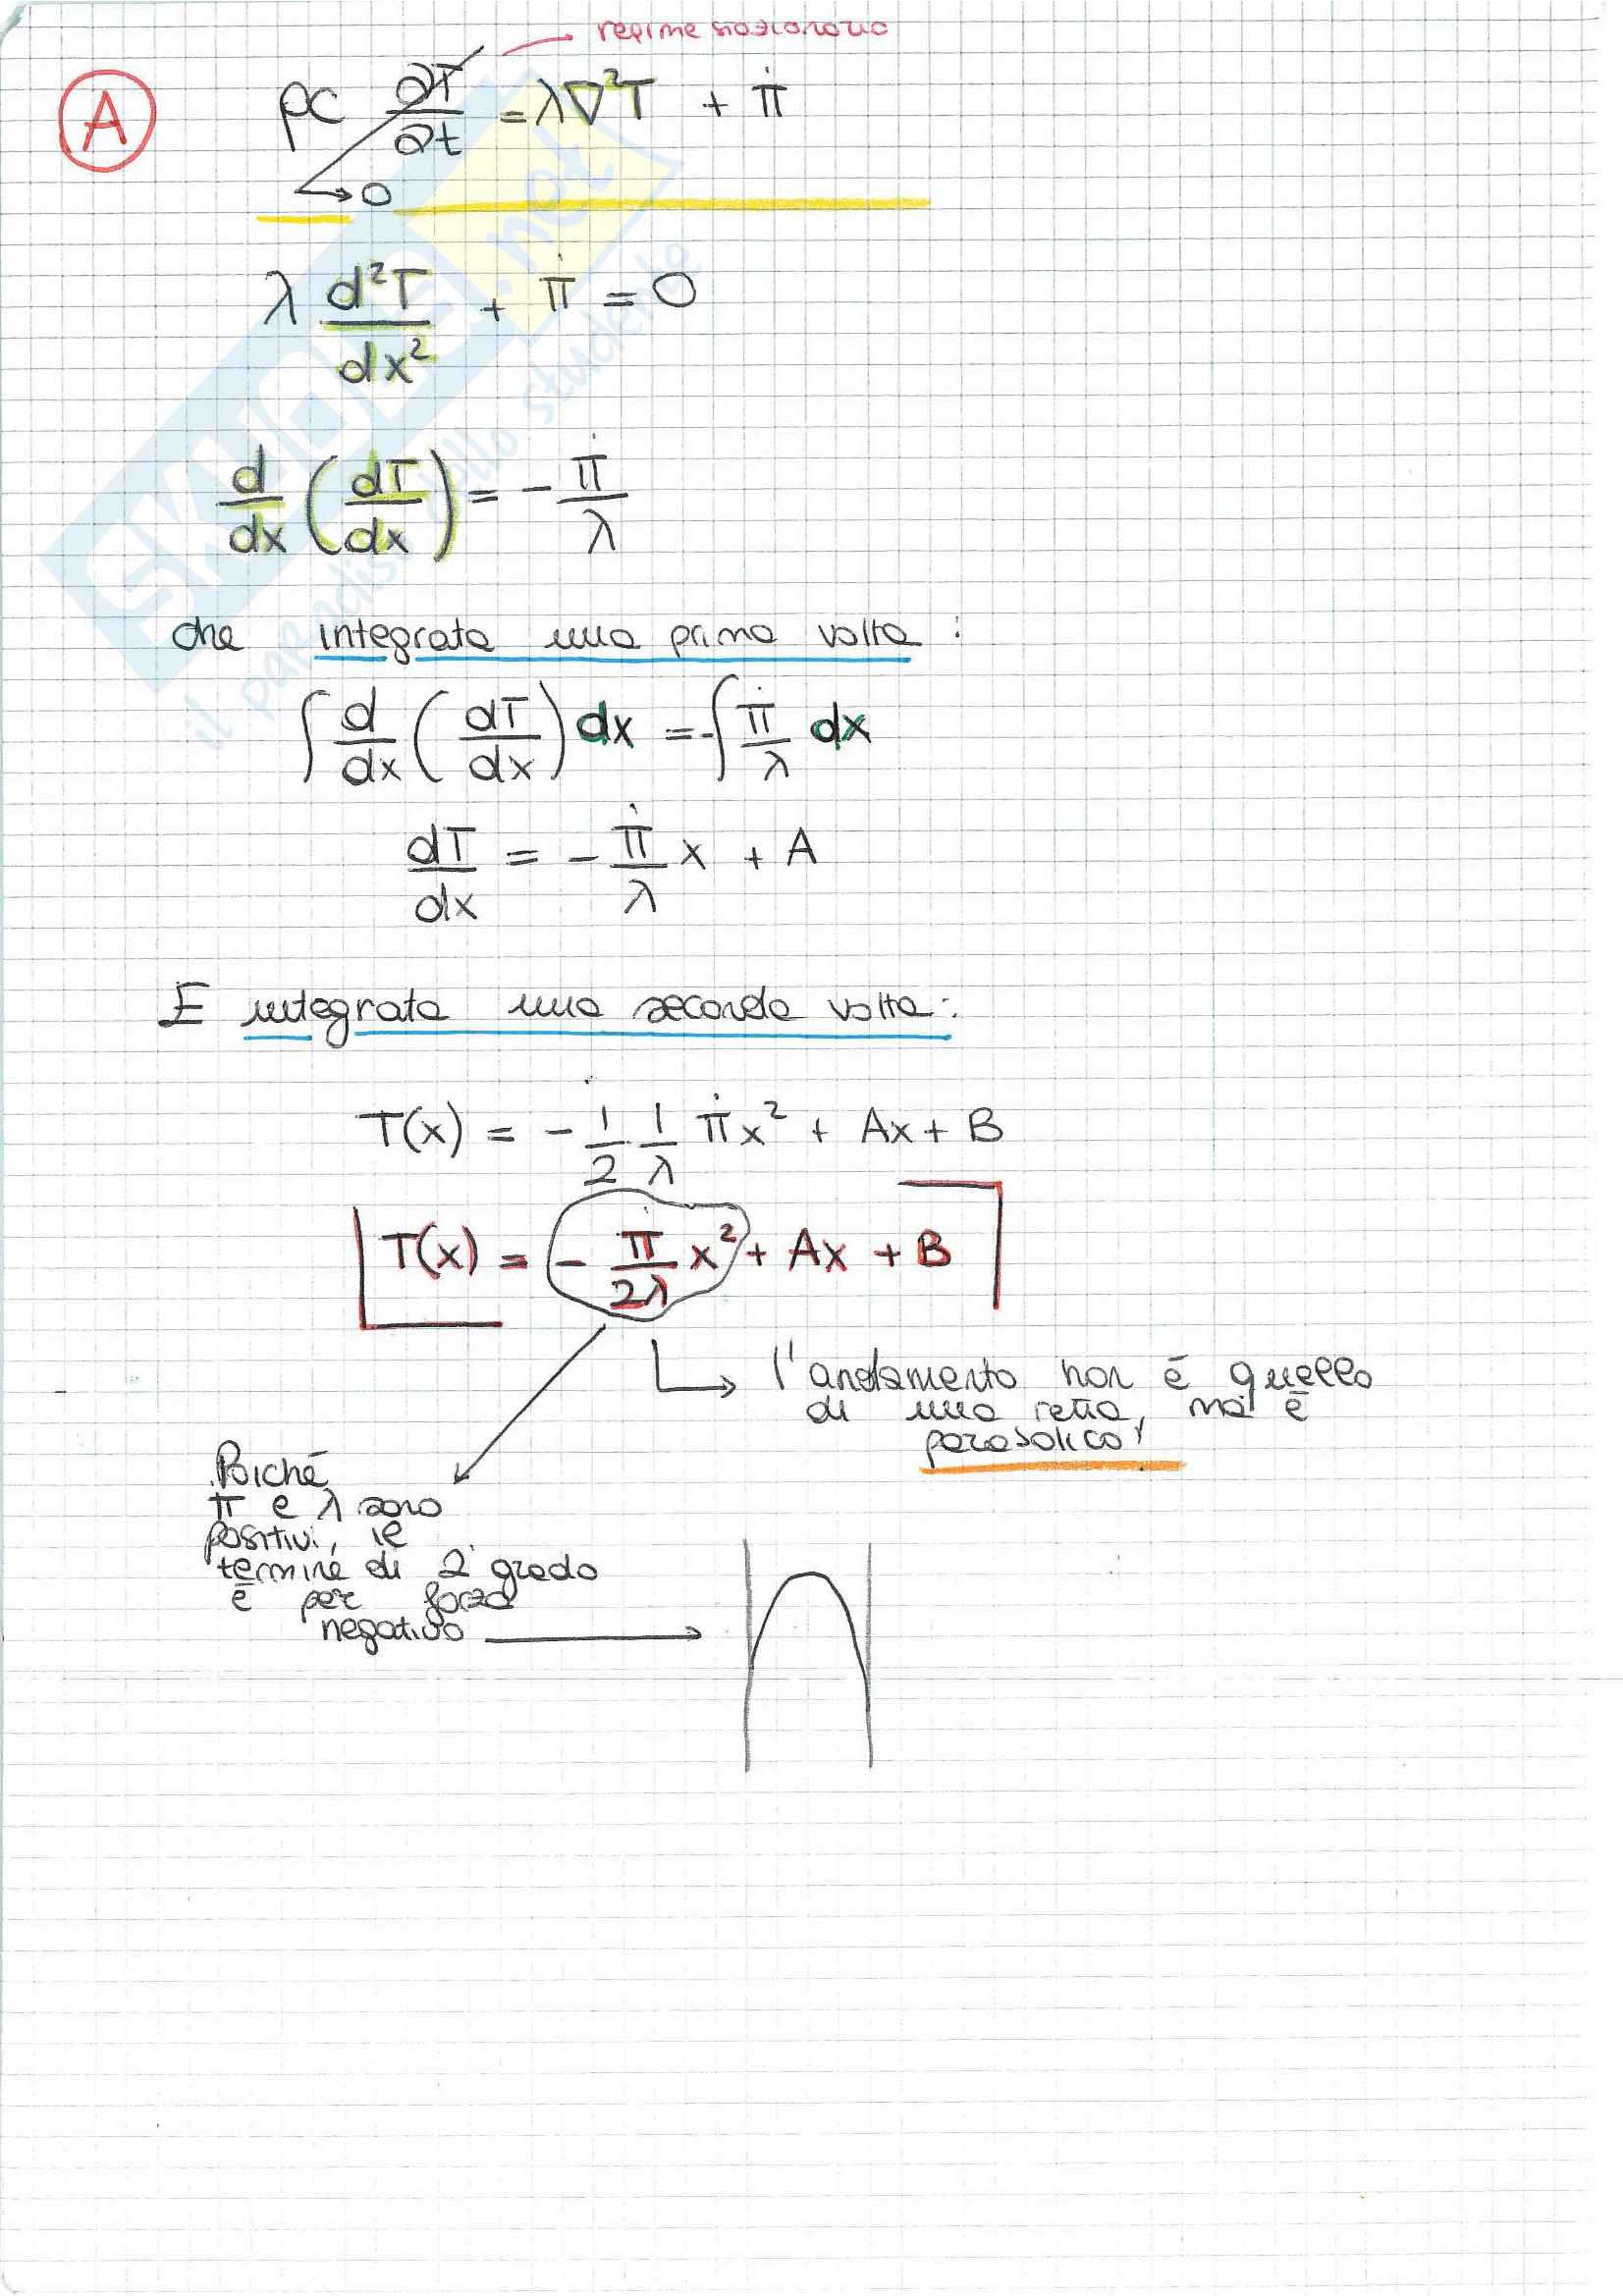 regime stazionario
A
ρc ∂T/∂t = λ∇²T + π̇
→ 0
λ d²T/dx² + π̇ = 0
d/dx (dT/dx) = - π̇/λ
che integrata una prima volta :
∫ d/dx (dT/dx) dx = -∫ π̇/λ dx
dT/dx = - π̇/λ x + A
E integrata una seconda volta :
T(x) = - 1/2 1/λ π̇x² + Ax + B
T(x) = - π̇/2λ x² + Ax + B
l'andamento non è quello
di una retta, ma è
parabolico!
Poiché
π e λ sono
positivi, il
termine di 2° grado
è per forza
negativo
SKUOLA.net
il paradiso dello studente